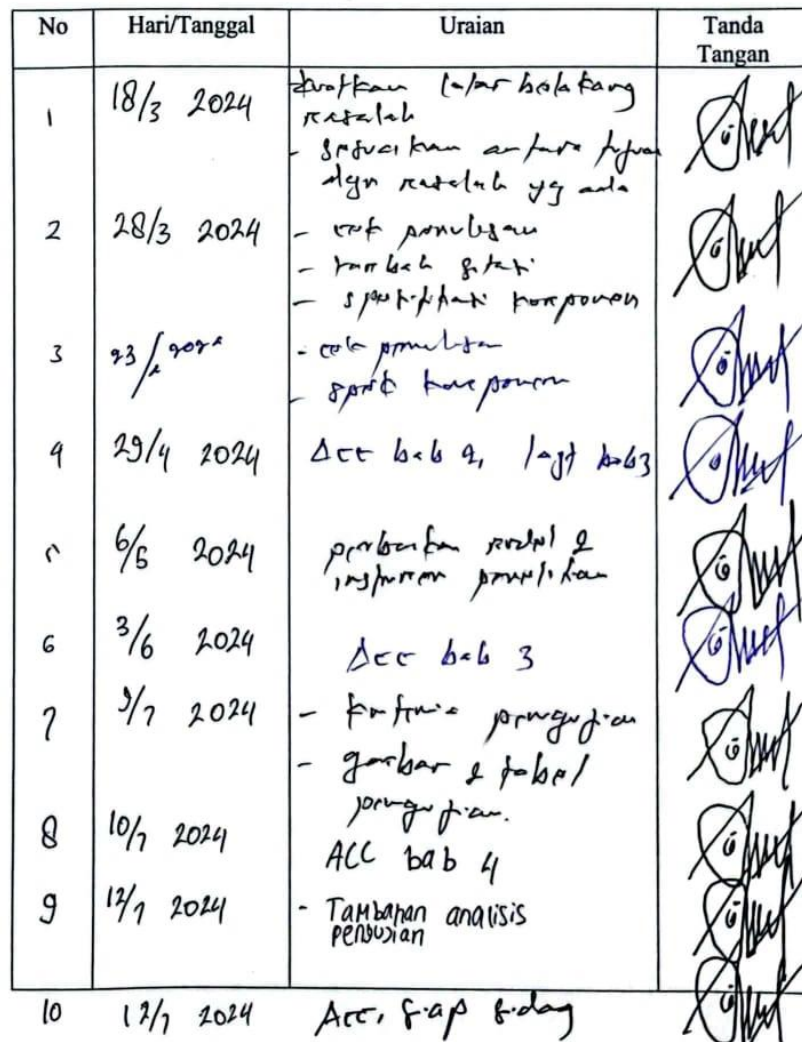 No Hari/Tanggal Uraian Tanda Tangan
1 18/3 2024 kuatkan latar belakang
masalah
- sesuaikan antara tujuan
dgn masalah yg ada
2 28/3 2024 - cek penulisan
- tambah sitasi
- spesifikasi komponen
3 23/4 2024 - cek penulisan
- spesik komponen
4 29/4 2024 Acc bab 2, lajt bab 3
6/5 2024 perbaikan model &
instrumen penelitian
6 3/6 2024 Acc bab 3
7 9/7 2024 - kriteria pengujian
- gambar & tabel
pengujian.
8 10/7 2024 ACC bab 4
9 12/7 2024 - Tambahan analisis
pengujian
10 12/7 2024 Acc, siap sidang